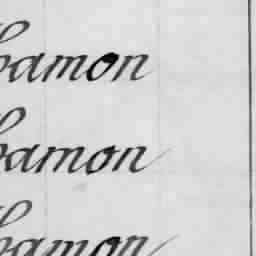 hamon
hamon
hamon